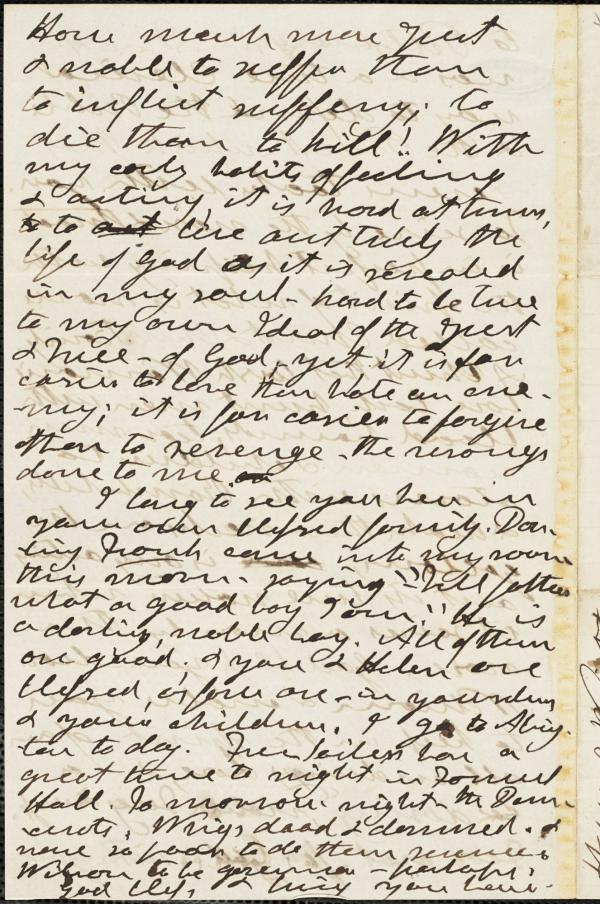 How much more just
& noble to suffer than
to inflict suffering; to
die than to kill! With
my early habits of feeling
& acting it is hard at times,
to live out truly the
life of God as it is revealed
in my soul - hard to be true
to my own Ideal of the just
& true - of God, yet it is far
easier to love than hate an ene-
-my; it is far easier to forgive
than to revenge - the wrongs
done to me
I long to see you here in
your own blessed family. Dar-
ling Frank came into my room
this morn - saying "Tell father
what a good boy I am." He is
a darling, noble boy. All of them
are good. & you & Helen are
blessed, as few are - in yourselves
& your children. I go to Abing-
ton to day. Free Soilers have a
great time to night in Faneuil
Hall. To morrow night - the Dem-
-ocrats. Whigs dead & damned. &
none so poor to do them reverence
Wilson to be governor - perhaps.
God bless & bring you home.